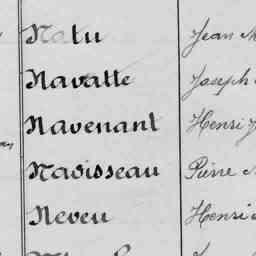 Natu Jean
Navatte Joseph
Navenant Henri
Navisseau Pierre
Neveu Henri